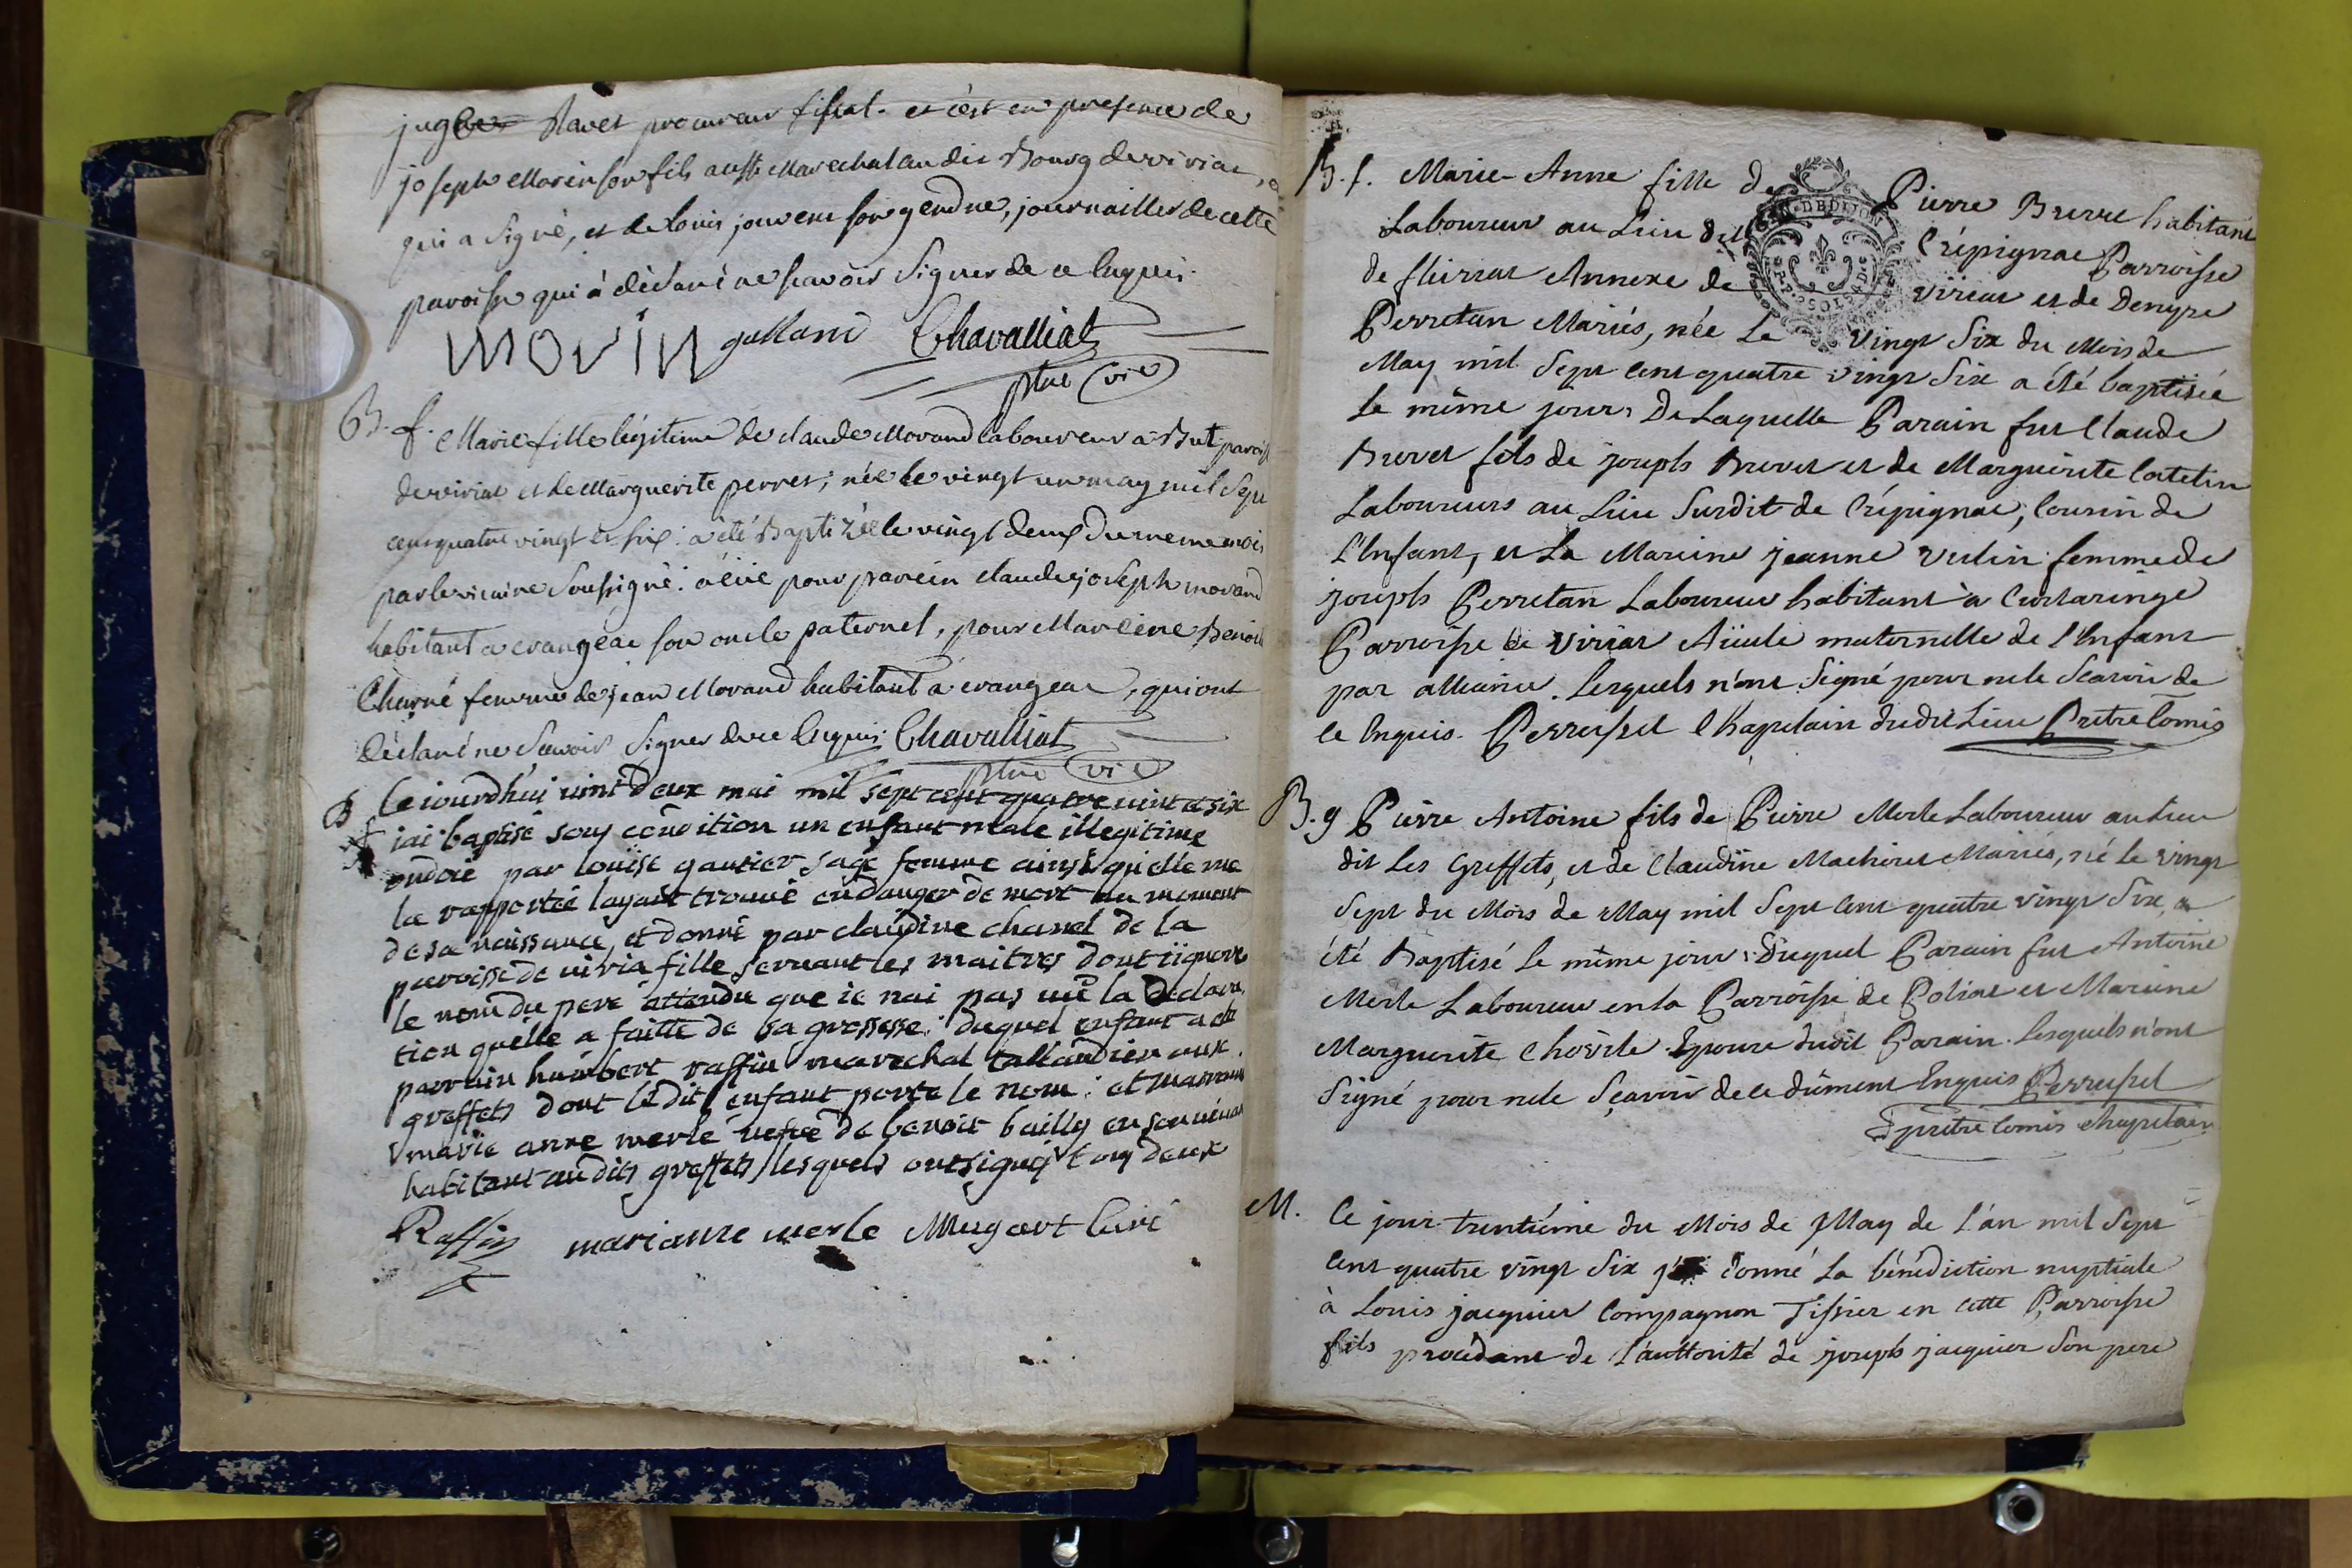 juge Ravet procureur fiscal. et c'est en presence de
joseph Morin son fils aussi Marechal au dit Bourg de viriat,
qui a signé, et de Louis jouvent son gendre, journaillier de cette
paroisse qui à déclaré ne scavoir signer de ce Enquis.
MORIN galland Chavalliat
ptre vic
B. f. Marie fille légitime de claude Morand laboureur à But paroisse
de viriat et de Marguerite perret; née le vingt un may mil sept
cens quatre vingt et six: a été Baptizée le vingt deux du meme mois
par le vicaire soussigné: a eüe pour parein claude joseph morand
habitant a crangeac son oncle paternel, pour Mareine Benoite
Charné femme de jean Morand habitant à crangeac, qui ont
déclaré ne scavoir signer de ce Enquis. Chavalliat
ptre vic
B Ce iourdhui vint deux mai mil sept cent quatre vint et six
iai baptisé sous condition un enfant male illegitime
ondoié par louise gautier sage femme ainsi quelle me
la rapporté layant trouvé en danger de mort au moment
de sa naissance, et donné par claudine chanel de la
paroisse de viria fille servant les maitres dont iignore
le nom du pere attendu que ie nai pas vu la declara
tion quelle a faitte de sa grossesse: duquel enfant a eté
parrain humbert raffin marechal tallandier aux
greffets dont ledit enfant porte le nom: et marraine
marie anne merle vefve de benoit bailly
habitant au dits greffets lesquels ont signé tous deux
Raffin marianne merle Mugart Curé
B. f. Marie-Anne fille de Pierre Brevet habitant
Laboureur au Lieu dit Crépignac Parroisse
de fleiriat Annexe de viriat et de Denyse
Perretan Mariés, née Le vingt Six du Mois de
May mil Sept Cent quatre vingt Six a été baptisée
le même jour, De Laquelle Parain fut Claude
Brevet fils de joseph Brevet et de Marguerite Cortetin
Laboureurs au Lieu Surdit de Crépignac, Cousin de
l'Enfant, et La Maraine jeanne vulin femme de
joseph Perretan Laboureur habitant à Curtaringe
Parroisse de viriat Aïeule maternelle de l'Enfant
par alliance. Lesquels n'ont Signé pour ne le Scavoir de
ce Enquis. Perrusset Chapelain dudit Lieu Prêtre Comis
B. g Pierre Antoine fils de Pierre Merle Laboureur au Lieu
dit Les Greffets, et de Claudine Machuret Mariés, né le vingt
Sept du Mois de May mil Sept Cent quatre vingt Six, a
été Baptisé le même jour: Duquel Parain fut Antoine
Merle Laboureur en la Parroisse de Poliat et Maraine
Marguerite Epouse dudit Parain. Lesquels n'ont
Signé pour ne le Sçavoir de ce dûment Enquis Perrusset
prêtre Comis chapelain
M. Ce jour trentiéme du Mois de May de l'an mil Sept
Cent quatre vingt Six j'ai donné La bénédiction nuptiale
à Louis jacquier Compagnon Tissier en Cette Parroisse
fils procédant de l'authorité de joseph jacquier Son pere